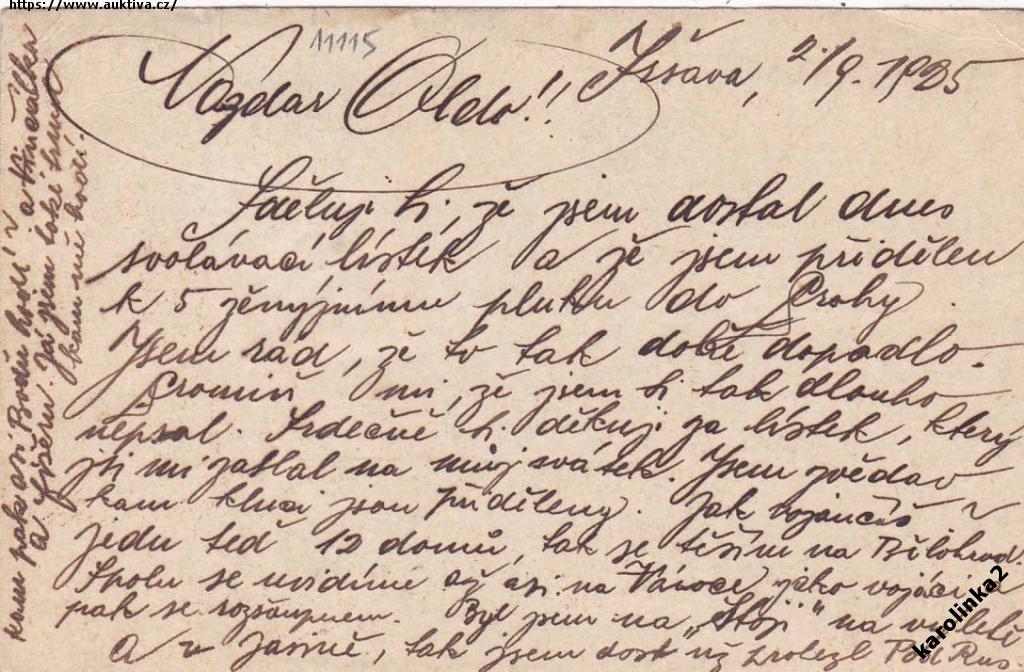 https://www.auktiva.cz/
11115
Nazdar Oldo!! Jršava, 2./9. 1925
Sděluji ti, že jsem dostal dnes
svolávací lístek a že jsem přidělen
k 5 ženýjnímu pluku do Prahy.
Jsem rád, že to tak dobře dopadlo.
Promiň mi, že jsem ti tak dlouho
nepsal. Srdečně ti děkuji za lístek, který
jsi mi zaslal na můj svátek. Jsem zvědav
kam kluci jsou přiděleny. Jak vojančíš
jedu teď 12 domů, tak se těším na Bělohrad.
Spolu se uvidíme až asi na Vánoce, jako vojáci a
pak se rozšoupnem. Byl jsem na „Stoji" na výletě
A v Jasině, tak jsem dost už prolezl Pod. Rus.
kam pak asi Bodu hodí a Mrňálka
a Fišeru. Já jsem také
kam mě hodí.
karolinka2